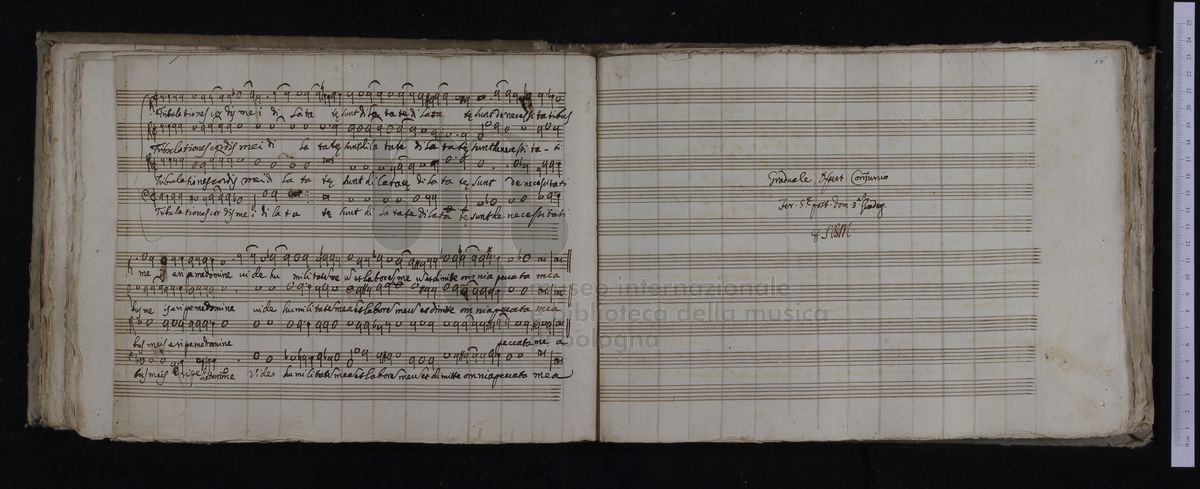 Tribulationes cordis mei di la ta tę sunt di la ta tę di lata tę sunt de necessitatibus
Tribulationes cordis mei di la tatę sunt di la tatę di la tatę sunt de necessi ta - ti
Tribulationes cordis mei di la ta tę sunt di latatę di la ta tę sunt de necessitati
Tribulationes cor dis me i di la ta tę sunt di la tatę di lata tę sunt de necessitati
me is eripe me domine vi de hu militatem me et labore me et dimitte omnia peccata mea
bus me is eripe me domine vide humilitatem mea et labore meu et dimitte omnia peccata mea
bus meis eripe me domine peccata me a
bus meis eripe me domine vide humilitatem mea et labore meu et dimitte omnia peccata mea
Graduale Offert. Communio
Fer. 5ª post. dom. 3ª
museo internazionale
e biblioteca della musica
di bologna